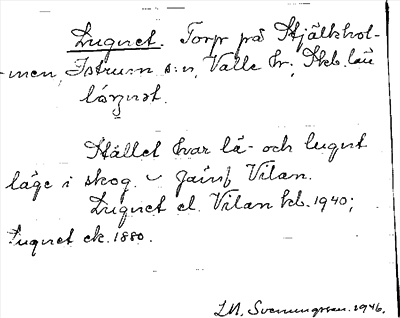 Lugnet. Torp på Stjälkhol-
men, Istrum s:n, Valle hr, Skb. län
Stället har lä- och lugnt
läge i skog. – Jämf Vilan.
Lugnet el. Vilan hb. 1940;
Lugnet ek. 1880.
LM. Svenungsson. 1946.